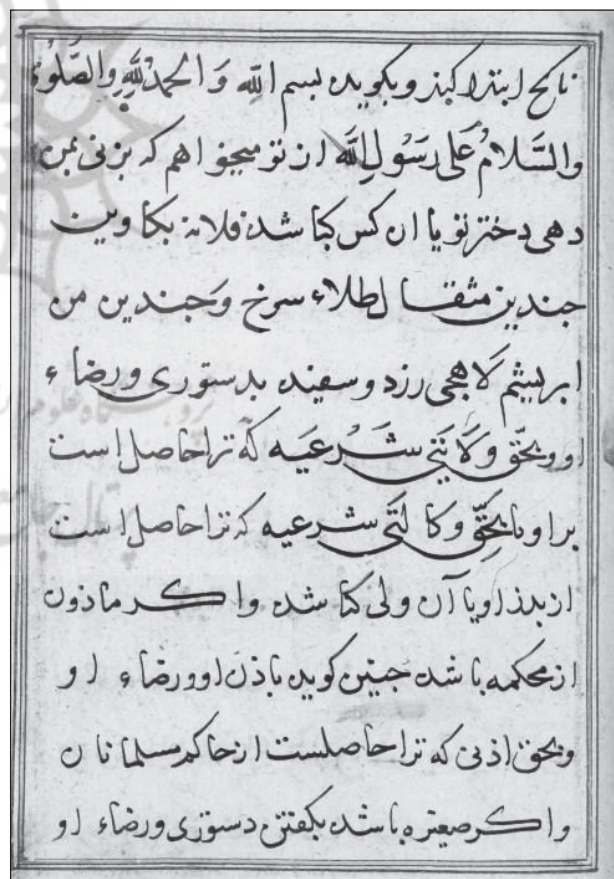 ناکح ابتدا کند و بکوید بسم الله وَ الحمدُ لِلّٰهِ وَالصَّلوٰة
والسَّلامُ عَلی رَسُولِ الله از تو میخواهم که بزنی بمن
دهی دختر تو یا ان کس کبا شد فلانه بکاوین
جندین مثقال طلاء سرخ وَجندین من
ابریشم لاهجی زرد و سفید بدستوری و رضاء
او و بحَق وَلَایَتی شَرعیَه که تراحاصل است
براو یا بحَقِّ وکالَتی شرعیه که تراحاصل است
از بدر او یا آن ولی کبا شد واکر ماذون
از محکمه باشد جنین کوید باذن او و رضاء او
وبحق اذنی که تراحاصلست از حاکم مسلمانان
واکر صغیره باشد بکفتن دستوری و رضاء او